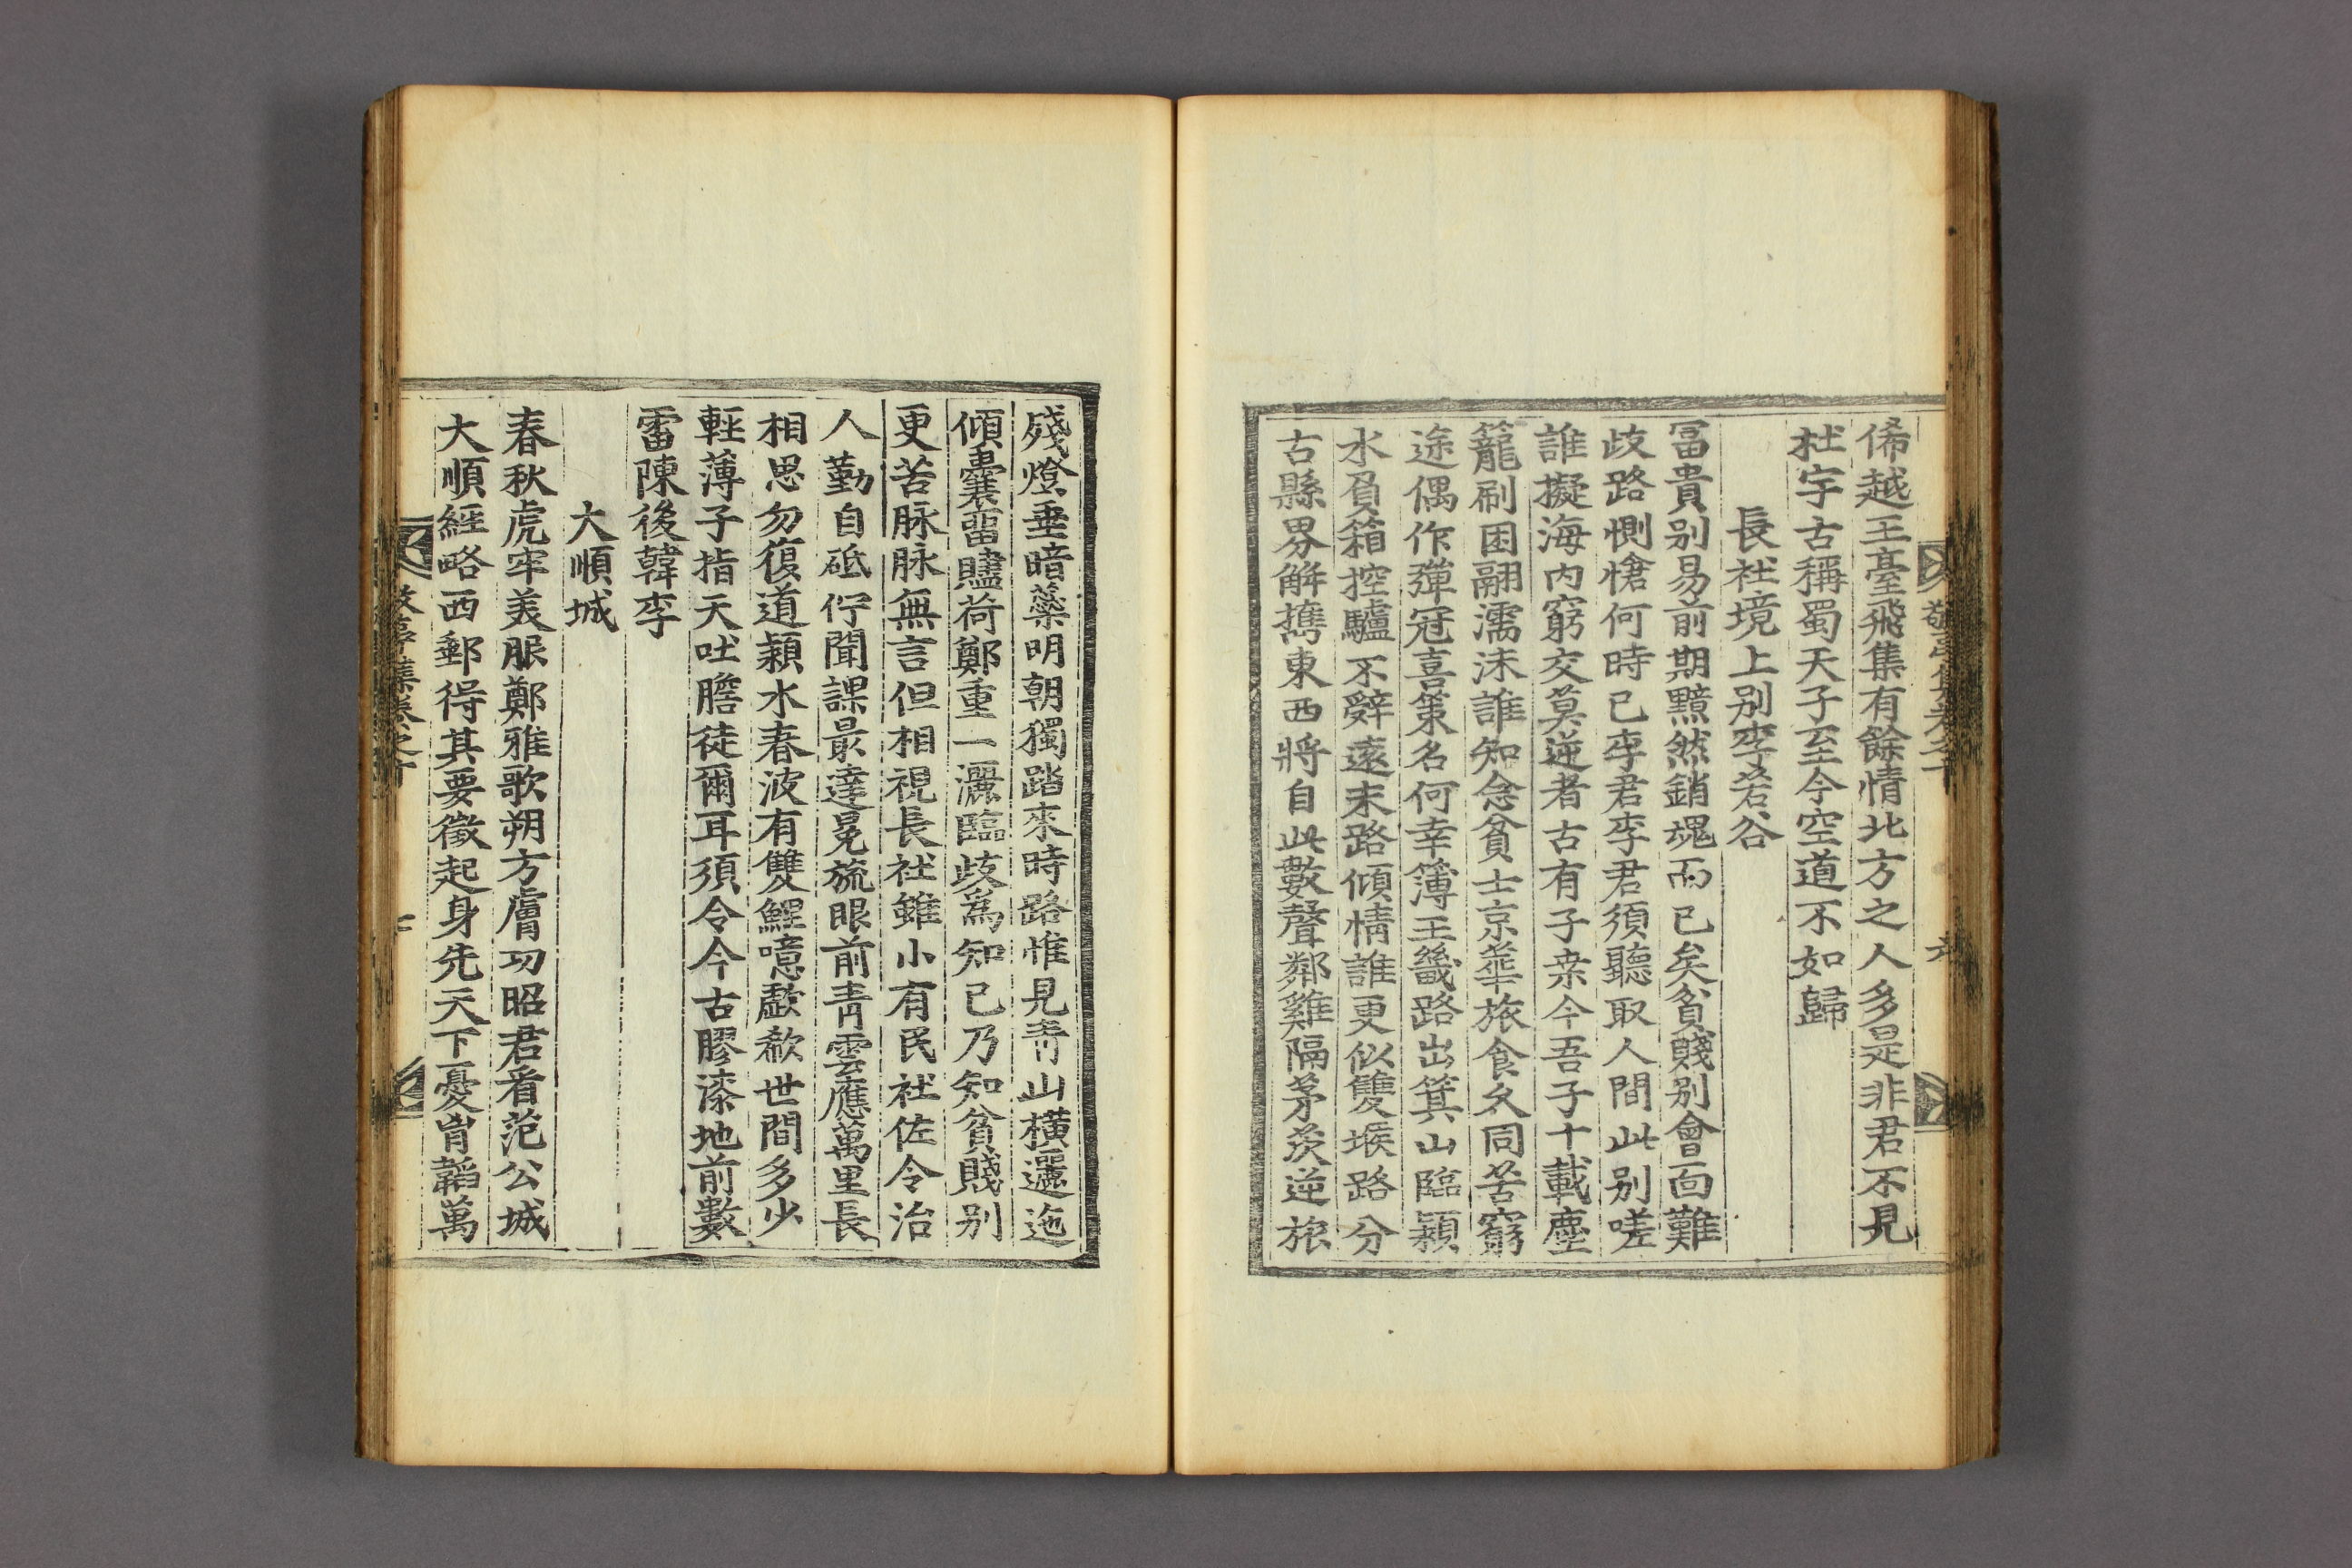 俙越王臺飛集有餘情北方之人多是非君不見
杜宇古稱蜀天子至今空道不如歸
長社境上別李若谷
冨貴別易前期黯然銷魂而已矣貧賤別會面難
歧路惻愴何時已李君李君須聽取人間此別嗟
誰擬海內窮交莫逆者古有子桒今吾子十載塵
籠刷困翮濡沫誰知念貧士京華旅食久同苦窮
途偶作彈冠喜策名何幸簿王畿路出箕山臨潁
水負箱控驢不辭遠末路傾情誰更似雙堠路分
古縣界解擕東西將自此數聲鄰雞隔茅茨逆旅
殘燈垂暗蘂明朝獨踏來時路惟見青山橫邐迤
傾囊留贐荷鄭重一灑臨歧爲知己乃知貧賤別
更苦脉脉無言但相視長社雖小有民社佐令治
人勤自砥佇聞課最達冕旒眼前青雲應萬里長
相思勿復道潁水春波有雙鯉噫歔欷世間多少
輕薄子指天吐膽徒爾耳須令今古膠漆地前數
雷陳後韓李
大順城
春秋虎牢美服鄭雅歌朔方膚功昭君看范公城
大順經略西郵得其要徵起身先天下憂胷韜萬